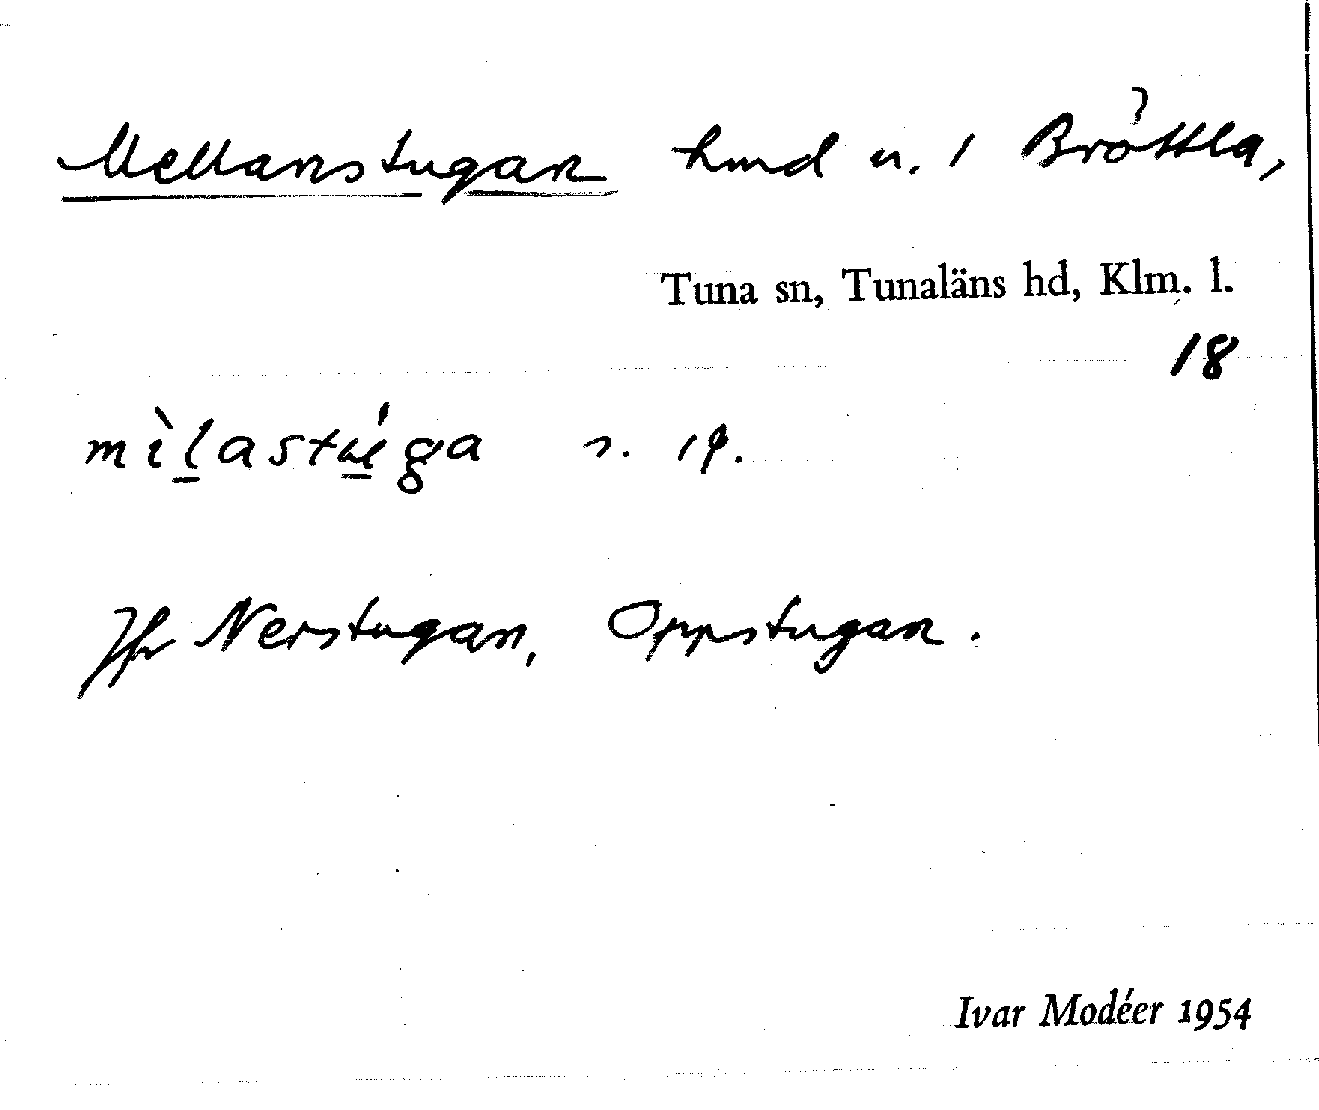 Mellanstugan hmd n. 1 Bröttla,
Tuna sn, Tunaläns hd, Klm. l.
18
mìlastúga
Jfr Nerstugan, Oppstugan.
Ivar Modéer 1954